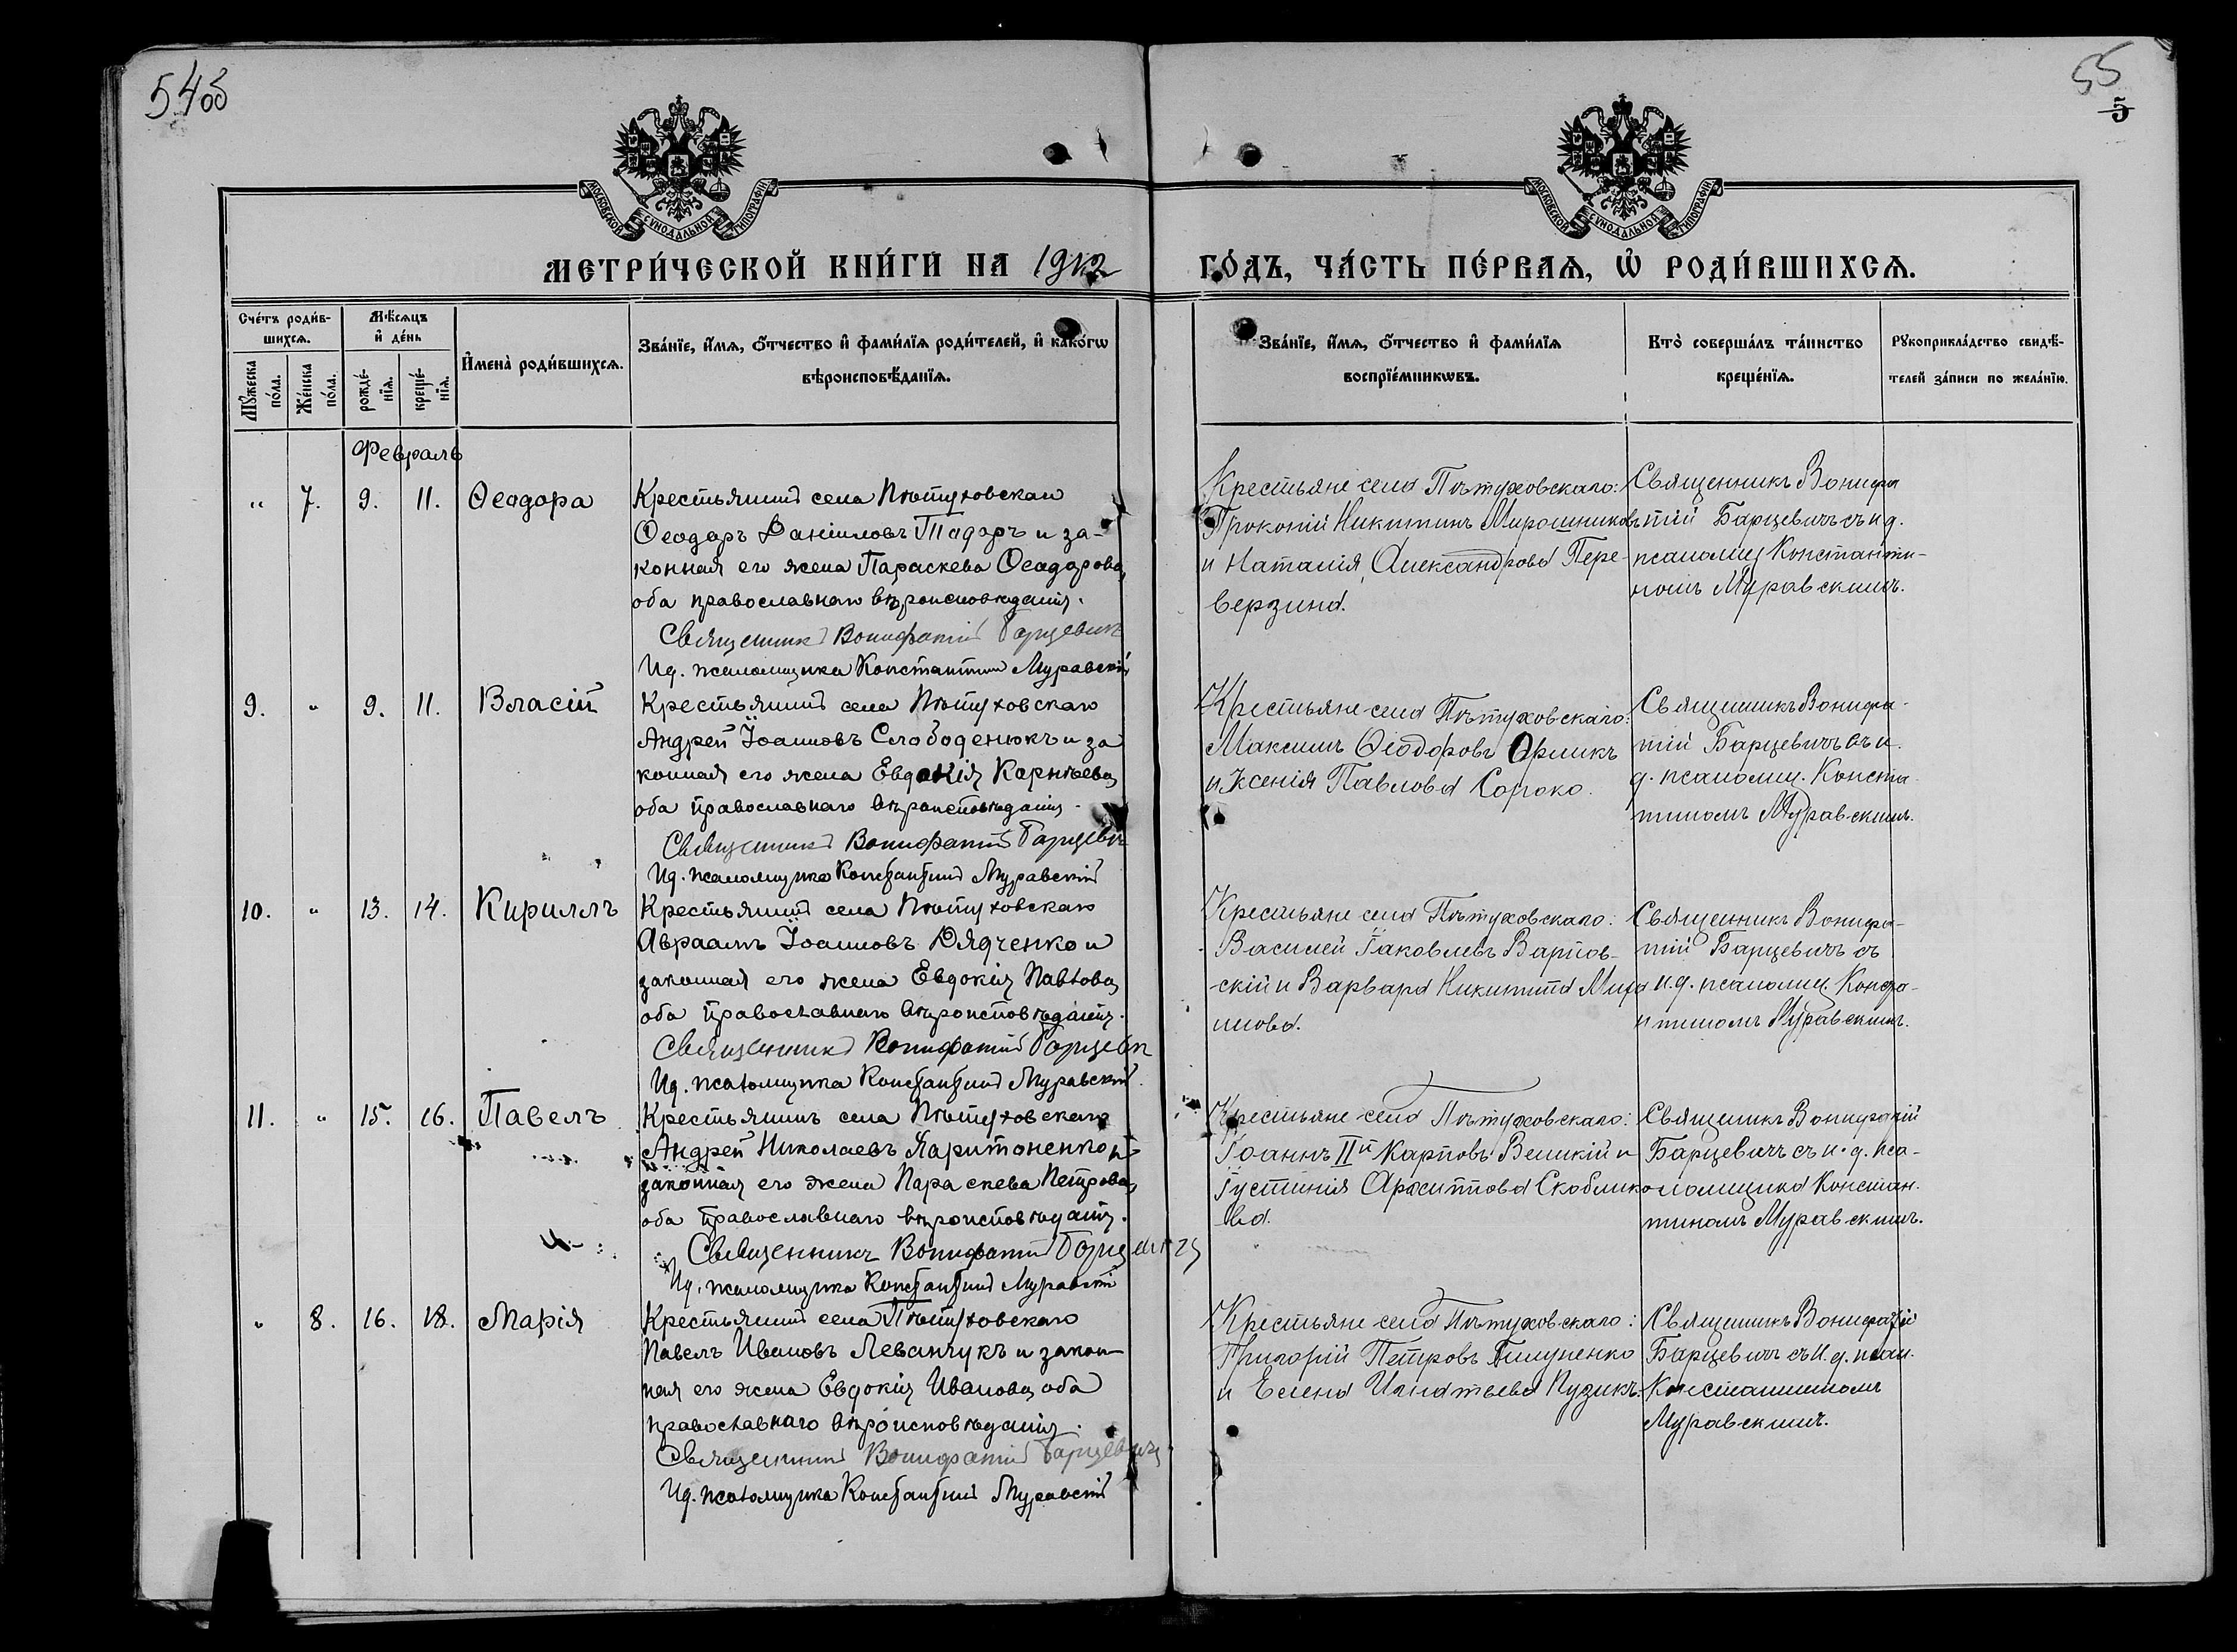 55
5
МОСКОВСКОЙ СѴНОДАЛЬНОЙ ТИПОГРАФІИ
МОСКОВСКОЙ СѴНОДАЛЬНОЙ ТИПОГРАФІИ
МЕТРИ́ЧЕСКОЙ КНИ́ГИ НА 1912 ГО́ДЪ, ЧА́СТЬ ПЕ́РВАѦ, Ѡ҆ РОДИ́ВШИХСѦ.
Сче́тъ роди́в-
шихсѧ.
Мꙋ́жеска
по́ла.
Же́нска
по́ла.
Мѣ́сѧцъ
и҆ де́нь
рожде́-
нїѧ.
креще́-
нїѧ.
И҆мена̀ роди́вшихсѧ.
Зва́нїе, и҆́мѧ, ѻ҆́тчество и҆ фами́лїѧ роди́телей, и҆ како́гѡ
вѣроисповѣ́данїѧ.
Зва́нїе, и҆́мѧ, ѻ҆́тчество и҆ фами́лїѧ
воспрїе́мникѡвъ.
Кто̀ соверша́лъ та́инство
креще́нїѧ.
Рꙋкоприкла́дство свидѣ́-
телей за́писи по жела́нїю.
Февраль
„ 7. 9. 11. Ѳеодора
Крестьянинъ села Пѣтуховскаго
Ѳеодоръ Даніиловъ Тодоръ и за-
конная его жена Параскева Ѳеодорова,
оба православнаго вѣроисповѣданія.
Священникъ Вонифатій Барцевичъ
И.д. псаломщика Константинъ Муравскій
Крестьяне села Пѣтуховскаго:
Прокопій Никитинъ Мирошниковъ
и Наталія Александрова Пере-
верзина.
Священникъ Вонифа
тій Барцевичъ съ и д.
псаломщ Константи-
номъ Муравскимъ.
9. „ 9. 11. Власій
Крестьянинъ села Пѣтуховскаго
Андрей Іоанновъ Слободенюкъ и за
конная его жена Евдокія Корнѣева,
оба православнаго вѣроисповѣданія.
Священникъ Вонифатій Барцевич
И.д. псаломщика Константинъ Муравскій
Крестьяне села Пѣтуховскаго:
Максимъ Ѳеодоровъ Орликъ
и Ксенія Павлова Сороко.
Священникъ Вонифа-
тій Барцевичъ съ и.
д. псаломщ. Конста
тиномъ Муравскимъ.
10. „ 13. 14. Кириллъ
Крестьянинъ села Пѣтуховскаго
Авраамъ Іоанновъ Дядченко и
законная его жена Евдокія Павлова,
оба православнаго вѣроисповѣданія.
Священникъ Вонифатій Барцевич
И.д. псаломщика Константинъ Муравскій.
Крестьяне села Пѣтуховскаго:
Василей Іаковлевъ Варпов-
скій и Варвара Никитина Миро
нова.
Священникъ Вонифа-
тій Барцевичъ съ
и.д. псаломщ.
Муравскимъ.
11. „ 15. 16. Павелъ
Крестьянинъ села Пѣтуховскаго
Андрей Николаевъ Харитоненко и
законная его жена Параскева Петрова,
оба православнаго вѣроисповѣданія.
Священникъ Вонифатій Барцевичъ
И.д. псаломщика Константинъ Муравскій
Крестьяне села Пѣтуховскаго:
Іоаннъ IIй Карповъ Великій и
Іустинія Архиппова Скоблико
ва.
Священникъ Вонифатій
Барцевичъ съ и.д. пса-
ломщика Констан.
тиномъ Муравскимъ.
„ 8. 16. 18. Марія
Крестьянинъ села Пѣтуховскаго
Павелъ Ивановъ Леванчукъ и закон-
ная его жена Евдокія Иванова, оба
православнаго вѣроисповѣданія.
Священникъ Вонифатій Барцевичъ
И.д. псаломщика Константинъ Муравскій
Крестьяне села Пѣтуховскаго:
Григорій Петровъ
и Елена Игнатьева Пузикъ.
Священникъ Вонифатій
Барцевичъ съ и.д. псал.
Константиномъ
Муравскимъ.